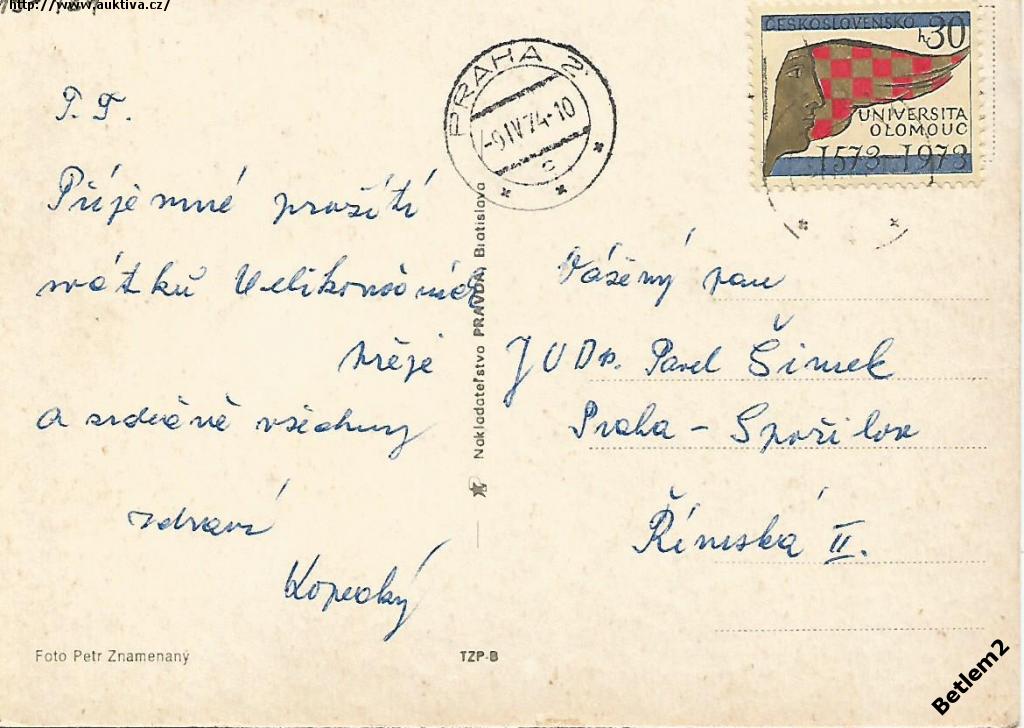 http://www.auktiva.cz/
P. F.
Příjemné prožití
svátků Velikonočních
přeje
a srdečně všechny
zdraví
Kopecký
PRAHA 2
-9.IV.74-10
c
ČESKOSLOVENSKO
30 h
UNIVERSITA
OLOMOUC
1573-1973
Nakladateľstvo PRAVDA, Bratislava
Vážený pan
JUDr. Pavel Šimek
Praha - Spořilov
Římská II.
Foto Petr Znamenaný
TZP-B
Betlem2